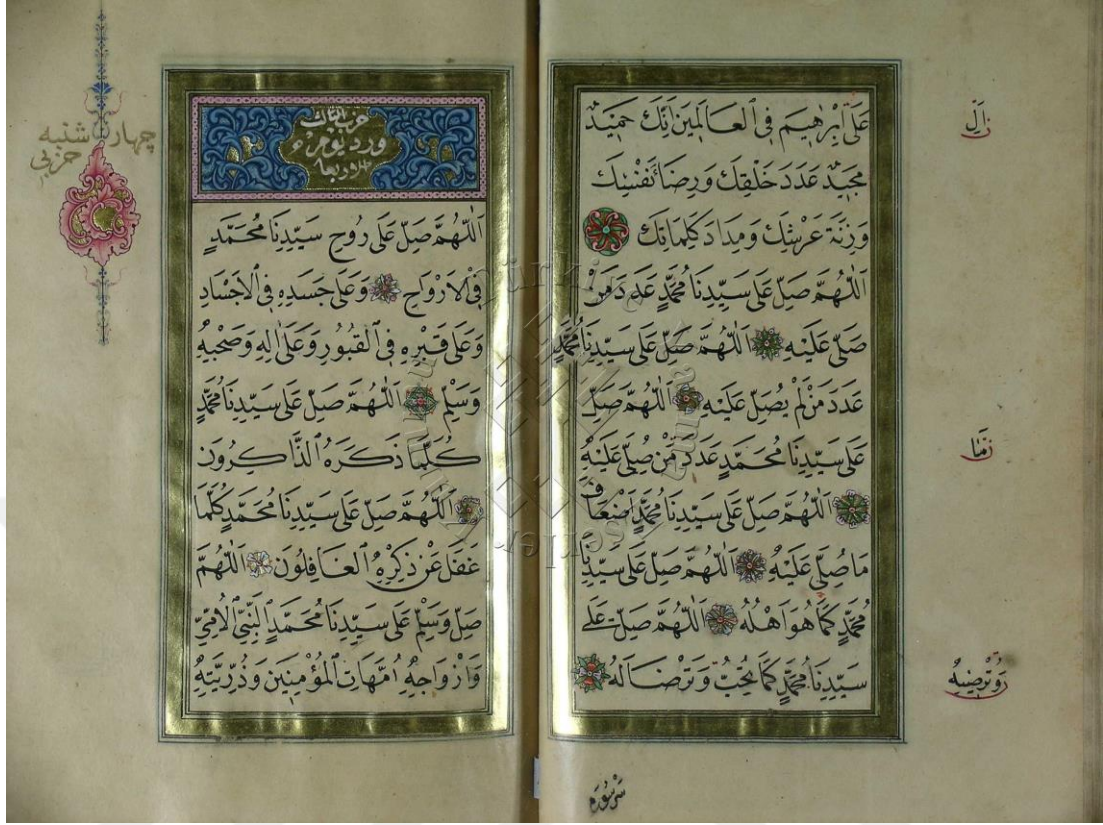 عَلَى اِبْرٰهِيمَ فِى الْعَالَمِينَ اِنَّكَ حَمِيدٌ
مَجِيدٌ عَدَدَ خَلْقِكَ وَرِضَاءَ نَفْسِكَ
وَزِنَةَ عَرْشِكَ وَمِدَادَ كَلِمَاتِكَ
اَللّٰهُمَّ صَلِّ عَلٰى سَيِّدِنَا مُحَمَّدٍ عَدَدَ مَنْ
صَلّٰى عَلَيْهِ اَللّٰهُمَّ صَلِّ عَلٰى سَيِّدِنَا مُحَمَّدٍ
عَدَدَ مَنْ لَمْ يُصَلِّ عَلَيْهِ اَللّٰهُمَّ صَلِّ
عَلٰى سَيِّدِنَا مُحَمَّدٍ عَدَدَ مَنْ صُلِّىَ عَلَيْهِ
اَللّٰهُمَّ صَلِّ عَلٰى سَيِّدِنَا مُحَمَّدٍ اَضْعَافَ
مَا صُلِّىَ عَلَيْهِ اَللّٰهُمَّ صَلِّ عَلٰى سَيِّدِنَا
مُحَمَّدٍ كَمَا هُوَ اَهْلُهُ اَللّٰهُمَّ صَلِّ عَلٰى
سَيِّدِنَا مُحَمَّدٍ كَمَا تُحِبُّ وَتَرْضَا لَهُ
حزب الثالث
ورد يوم
اَللّٰهُمَّ صَلِّ عَلٰى رُوحِ سَيِّدِنَا مُحَمَّدٍ
فِى الْاَرْوَاحِ وَعَلٰى جَسَدِهِ فِى الْاَجْسَادِ
وَعَلٰى قَبْرِهِ فِى الْقُبُورِ وَعَلٰى اٰلِهِ وَصَحْبِهِ
وَسَلِّمْ اَللّٰهُمَّ صَلِّ عَلٰى سَيِّدِنَا مُحَمَّدٍ
كُلَّمَا ذَكَرَهُ الذَّاكِرُونَ
اَللّٰهُمَّ صَلِّ عَلٰى سَيِّدِنَا مُحَمَّدٍ كُلَّمَا
غَفَلَ عَنْ ذِكْرِهِ الْغَافِلُونَ اَللّٰهُمَّ
صَلِّ وَسَلِّمْ عَلٰى سَيِّدِنَا مُحَمَّدٍ النَّبِىِّ الْاُمِّىِّ
وَاَزْوَاجِهِ اُمَّهَاتِ الْمُؤْمِنِينَ وَذُرِّيَّتِهِ
چهار شنبه
حزبى